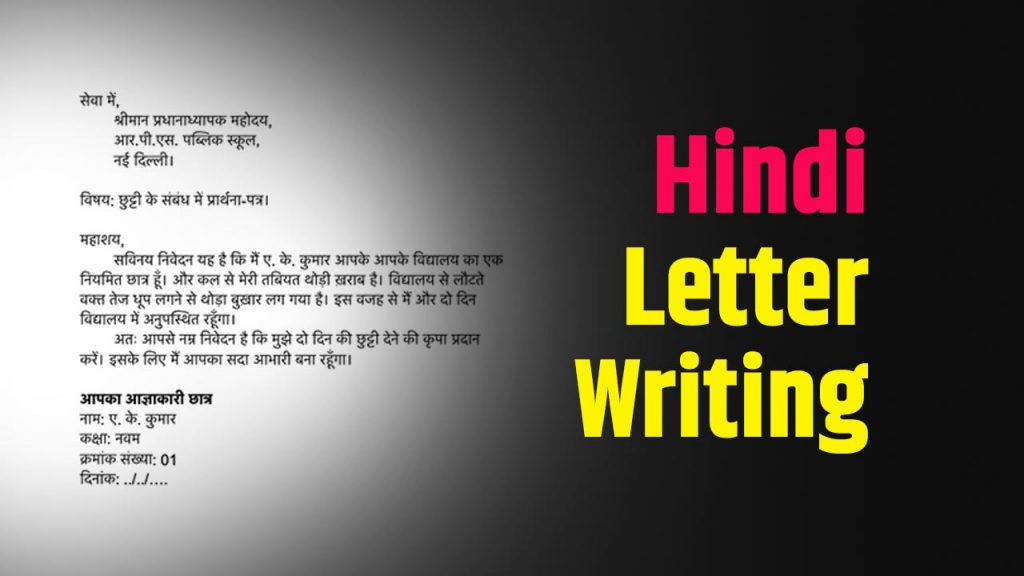 सेवा में,
श्रीमान प्रधानाध्यापक महोदय,
आर.पी.एस. पब्लिक स्कूल,
नई दिल्ली।
विषय: छुट्टी के संबंध में प्रार्थना-पत्र।
महाशय,
सविनय निवेदन यह है कि मैं ए. के. कुमार आपके आपके विद्यालय का एक
नियमित छात्र हूँ। और कल से मेरी तबियत थोड़ी ख़राब है। विद्यालय से लौटते
वक्त तेज धूप लगने से थोड़ा बुख़ार लग गया है। इस वजह से मैं और दो दिन
विद्यालय में अनुपस्थित रहूँगा।
अतः आपसे नम्र निवेदन है कि मुझे दो दिन की छुट्टी देने की कृपा प्रदान
करें। इसके लिए मैं आपका सदा आभारी बना रहूँगा।
आपका आज्ञाकारी छात्र
नाम: ए. के. कुमार
कक्षा: नवम
क्रमांक संख्या: 01
दिनांक: ../../....
Hindi
Letter
Writing